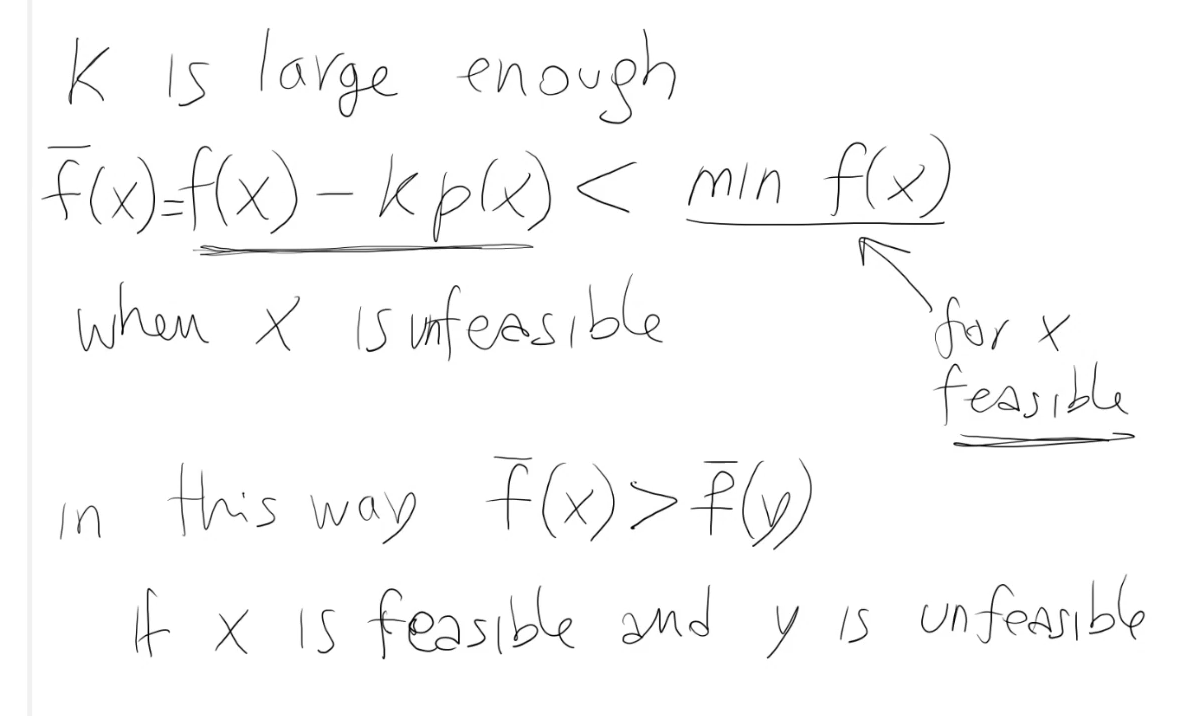 K is large enough
f̅(x)=f(x) – k p(x) < min f(x)
when x is unfeasible
for x
feasible
in this way f̅(x) > f̅(y)
if x is feasible and y is unfeasible